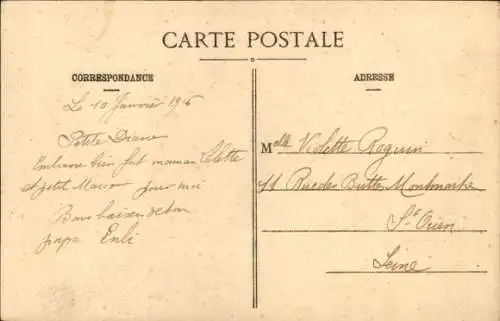 CARTE POSTALE
CORRESPONDANCE
ADRESSE
Le 10 Janvier 1916
Petite Diane
Embrasse bien fort maman Colette
Marco pour moi
Bons baisers de ton
papa
Mlle Violette Roguin
11 Rue des Buttes Montmartre
St Ouen
Seine